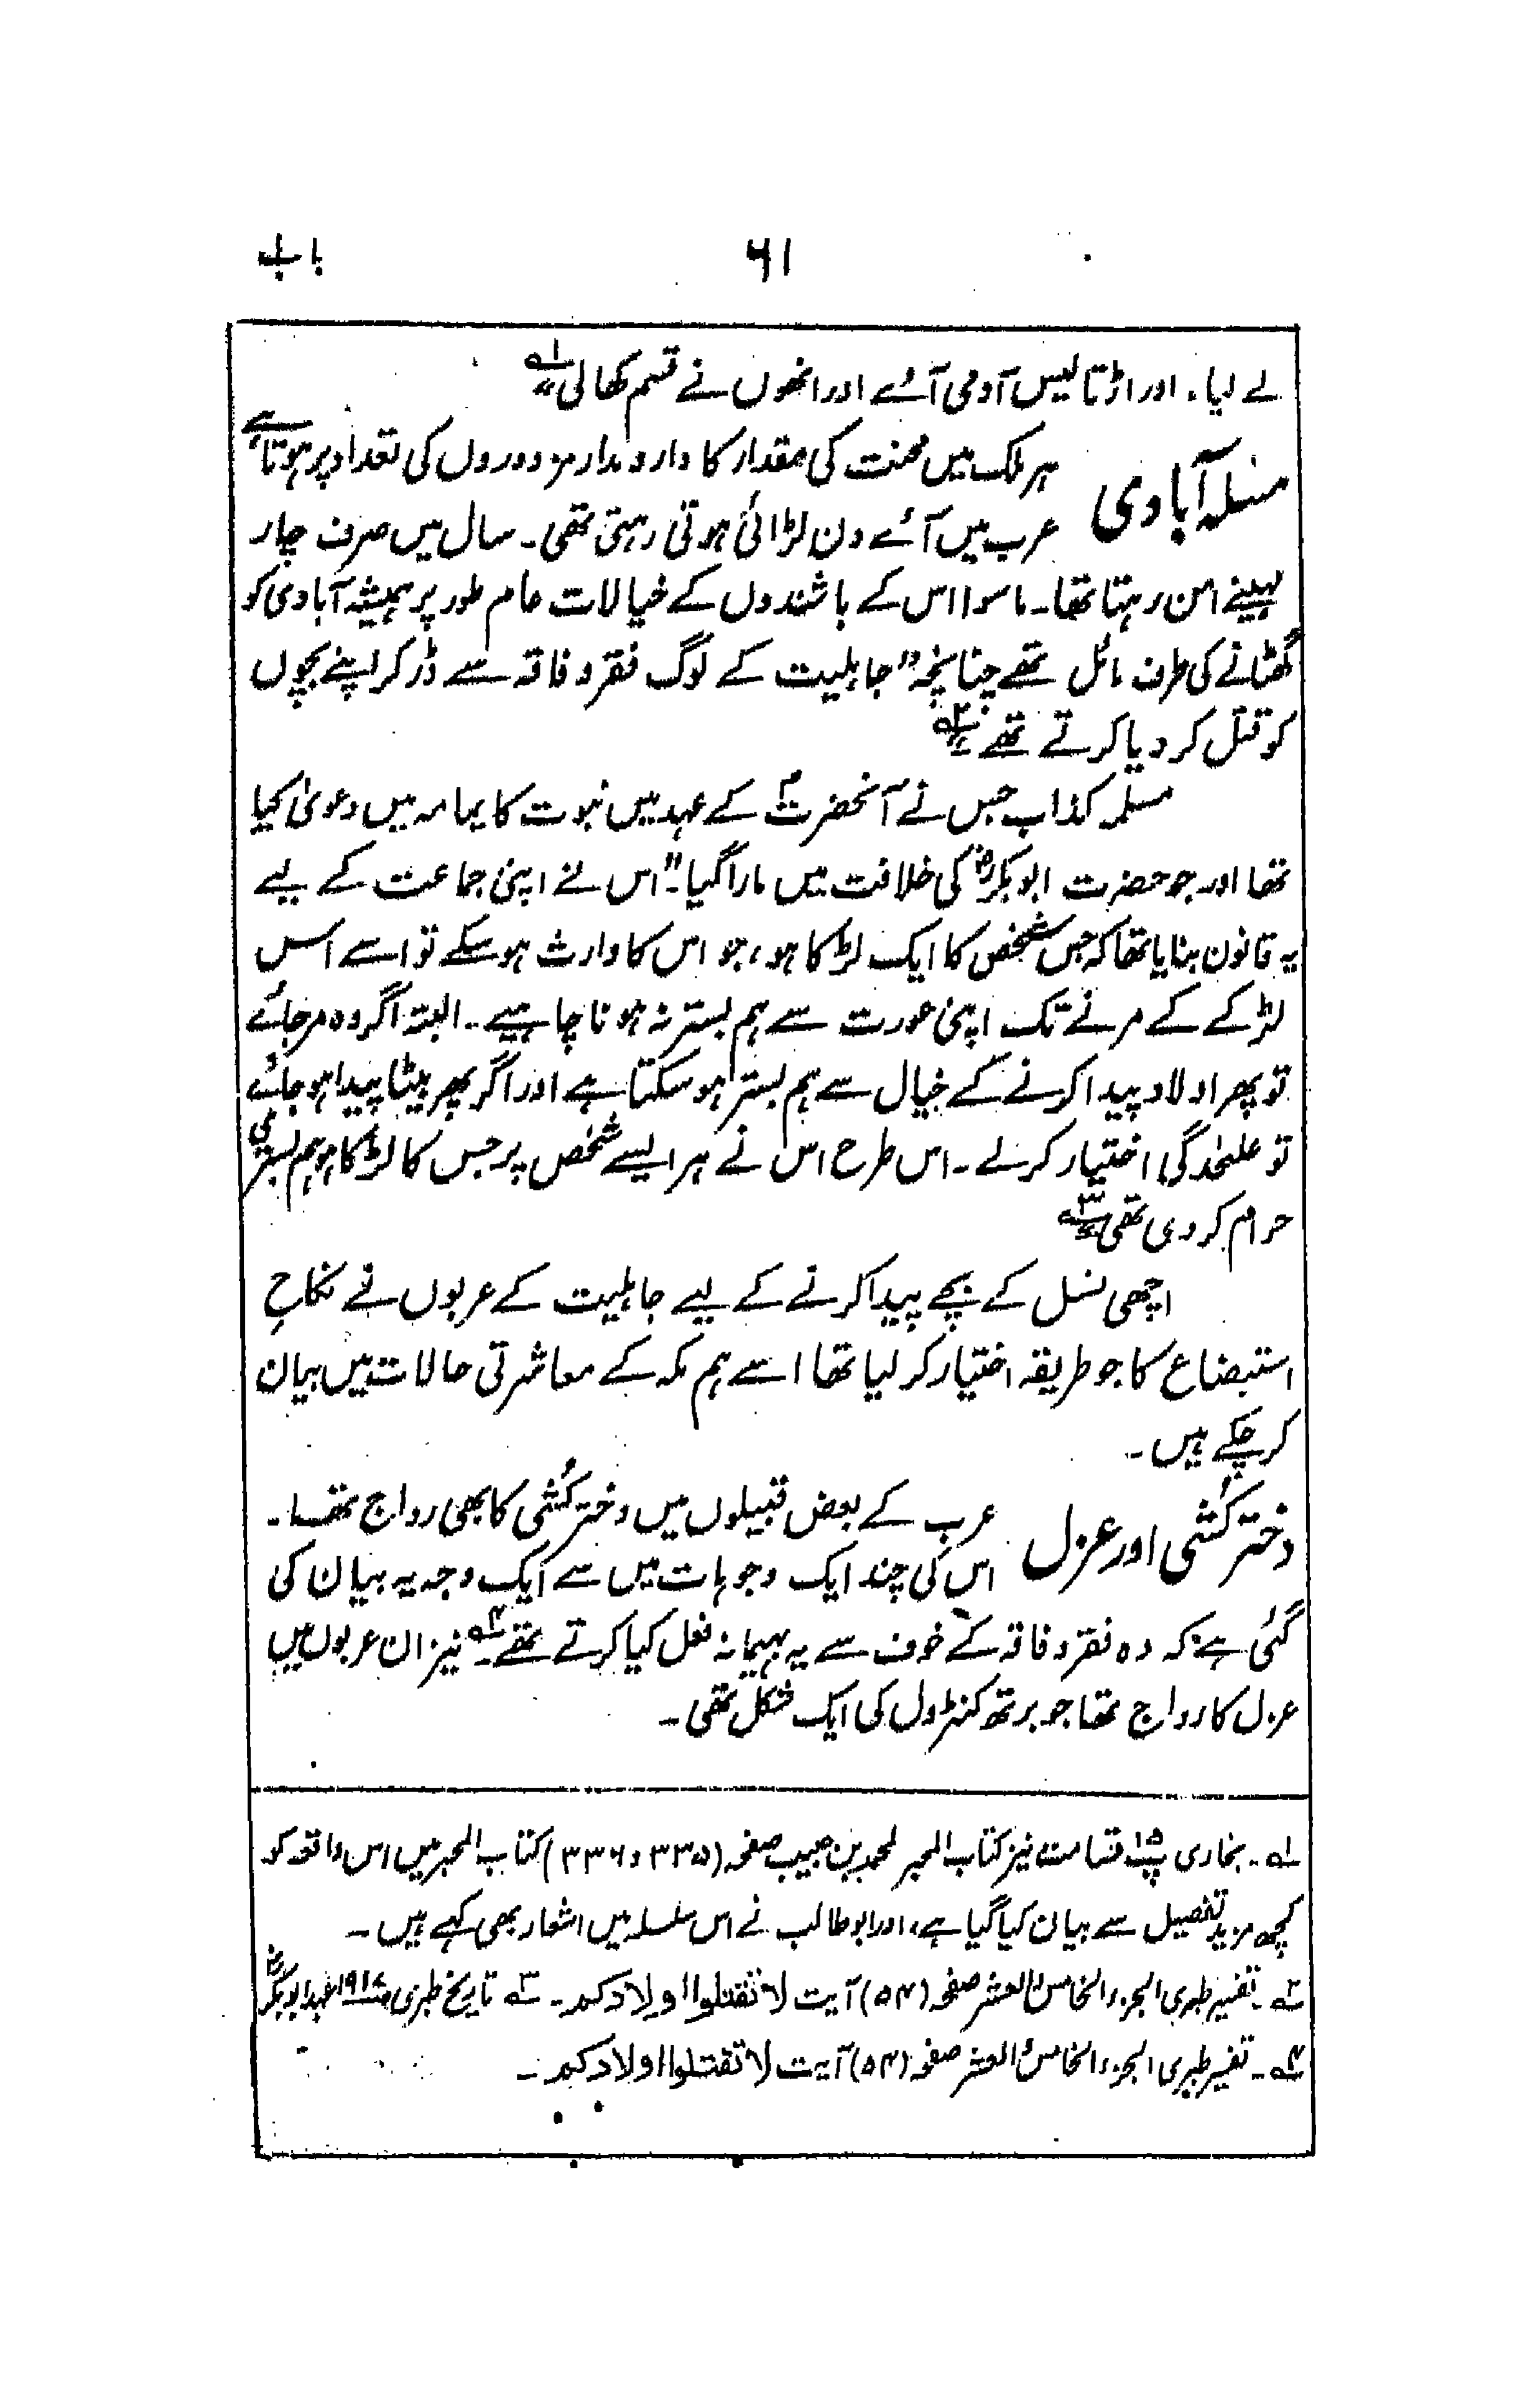 باب ۶۱
لے لیا۔ اور اڑتالیس آدمی آئے اور انھوں نے قسم کھالی ۱ے
مسئلہ آبادی ہر ملک میں محنت کی مقدار کا دارومدار مزدوروں کی تعداد پر ہوتا ہے
عرب میں آئے دن لڑائی ہوتی رہتی تھی۔ سال میں صرف چار
مہینے امن رہتا تھا۔ ماسوا اس کے باشندوں کے خیالات عام طور پر ہمیشہ آبادی کو
گھٹانے کی طرف مائل تھے چنانچہ "جاہلیت کے لوگ فقر و فاقہ سے ڈر کر اپنے بچوں
کو قتل کر دیا کرتے تھے" ۲ے
مسیلمہ کذاب جس نے آنحضرتؐ کے عہد میں نبوت کا یمامہ میں دعویٰ کیا
تھا اور جو حضرت ابوبکرؓ کی خلافت میں مارا گیا۔ "اس نے اپنی جماعت کے لیے
یہ قانون بنایا تھا کہ جس شخص کا ایک لڑکا ہو، جو اس کا وارث ہو سکے تو اسے اس
لڑکے کے مرنے تک اپنی عورت سے ہم بستر نہ ہونا چاہیے۔ البتہ اگر وہ مر جائے
تو پھر اولاد پیدا کرنے کے خیال سے ہم بستر ہو سکتا ہے اور اگر پھر بیٹا پیدا ہو جائے
تو علٰحدگی اختیار کر لے۔ اس طرح اس نے ہر ایسے شخص پر جس کا لڑکا ہو ہم بستری
حرام کر دی تھی ۳ے
اچھی نسل کے بچے پیدا کرنے کے لیے جاہلیت کے عربوں نے نکاحِ
استبضاع کا جو طریقہ اختیار کر لیا تھا اسے ہم مکہ کے معاشرتی حالات میں بیان
کر چکے ہیں۔
دختر کُشی اور عزل عرب کے بعض قبیلوں میں دختر کُشی کا بھی رواج تھا۔
اس کی چند ایک وجوہات میں سے ایک وجہ یہ بیان کی
گئی ہے کہ وہ فقر و فاقہ کے خوف سے یہ بہیمانہ فعل کیا کرتے تھے۔ ۴ے نیز ان عربوں میں
عزل کا رواج تھا جو برتھ کنٹرول کی ایک شکل تھی۔
۱ے۔ بخاری پ ۱۵ قسامت نیز کتاب المحبر لمحمد بن حبیب صفحہ (۳۳۵ و ۳۳۶) کتاب المحبر میں اس واقعہ کو
کچھ مزید تفصیل سے بیان کیا گیا ہے، اور ابوطالب نے اس سلسلہ میں اشعار بھی کہے ہیں۔
۲ے۔ تفسیر طبری الجزء الخامس العشر صفحہ (۵۴) آیت لا تقتلوا اولادکم۔ ۳ے تاریخ طبری عہد ابوبکرؓ
۴ے۔ تفسیر طبری الجزء الخامس العشر صفحہ (۵۴) آیت لا تقتلوا اولادکم۔